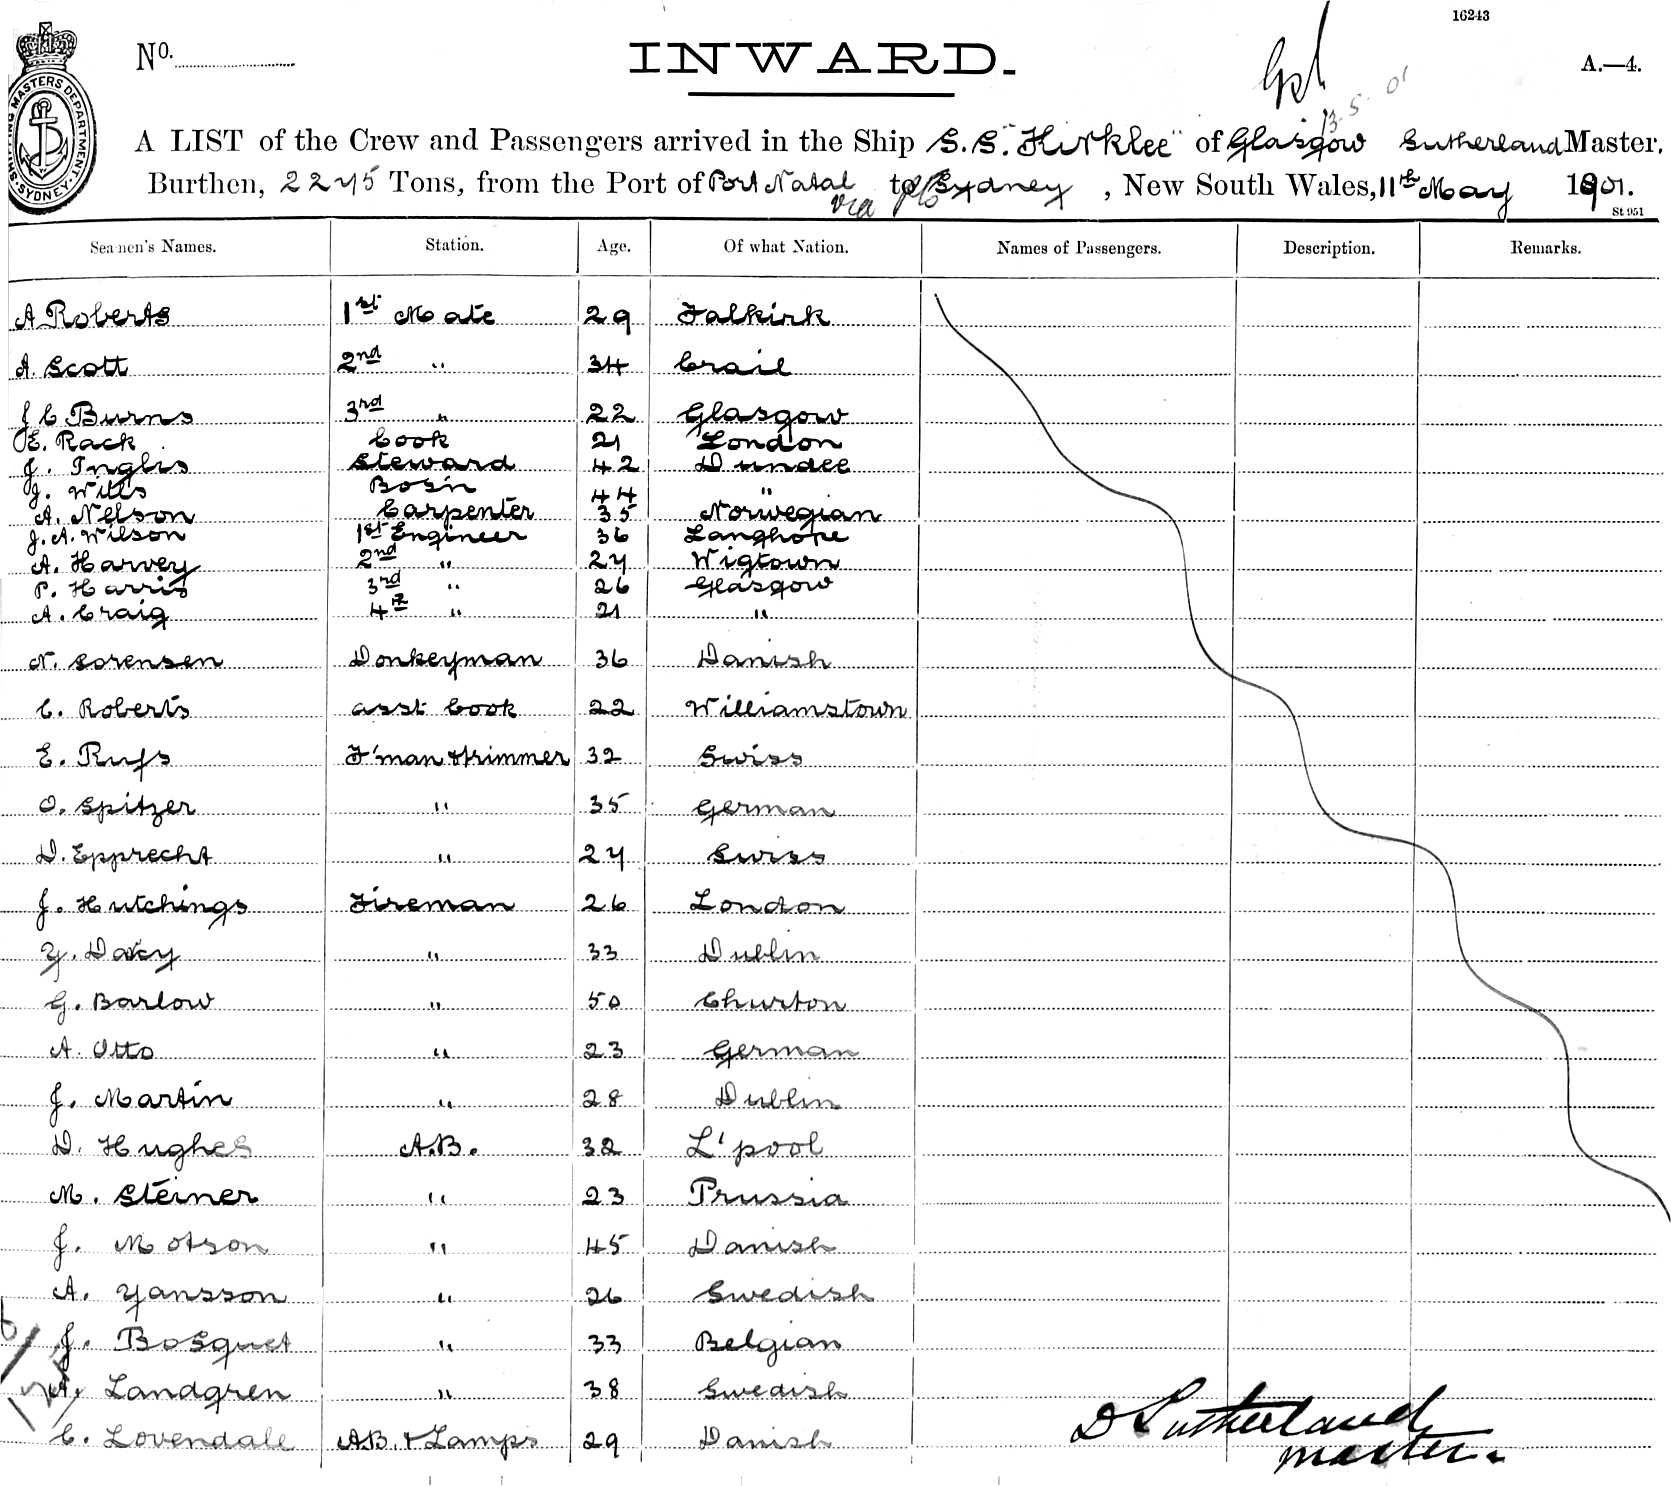 16243
No. INWARD. A.—4.
13.5.01
SHIPPING MASTERS DEPARTMENT. SYDNEY.
A LIST of the Crew and Passengers arrived in the Ship S.S. "Kirklee" of Glasgow Sutherland Master,
Burthen, 2275 Tons, from the Port of Port Natal to Sydney, New South Wales, 11th May 1901.
via
St 951
Seamen's Names. Station. Age. Of what Nation. Names of Passengers. Description. Remarks.
A Roberts 1st Mate 29 Falkirk
A. Scott 2nd " 34 Crail
J C Burns 3rd " 22 Glasgow
E. Rack Cook 21 London
J. Inglis Steward 42 Dundee
J. Wills Bosn 44 "
A. Nelson Carpenter 35 Norwegian
J. A. Wilson 1st Engineer 36 Langhope
A. Harvey 2nd " 27 Wigtown
P. Harris 3rd " 26 Glasgow
A. Craig 4th " 21 "
N. Sorensen Donkeyman 36 Danish
C. Roberts asst Cook 22 Williamstown
E. Rufs F'man & trimmer 32 Swiss
O. Spitzer " 35 German
D. Epprecht " 27 Swiss
J. Hutchings Fireman 26 London
Y. Daxy " 33 Dublin
G. Barlow " 50 Churton
A. Otto " 23 German
J. Martin " 28 Dublin
D. Hughes A.B. 32 L'pool
M. Steiner " 23 Prussia
J. Motson " 45 Danish
A. Yansson " 26 Swedish
J. Bosquet " 33 Belgian
A. Landgren " 38 Swedish
C. Lovendale AB. & Lamps 29 Danish
D Sutherland
master.